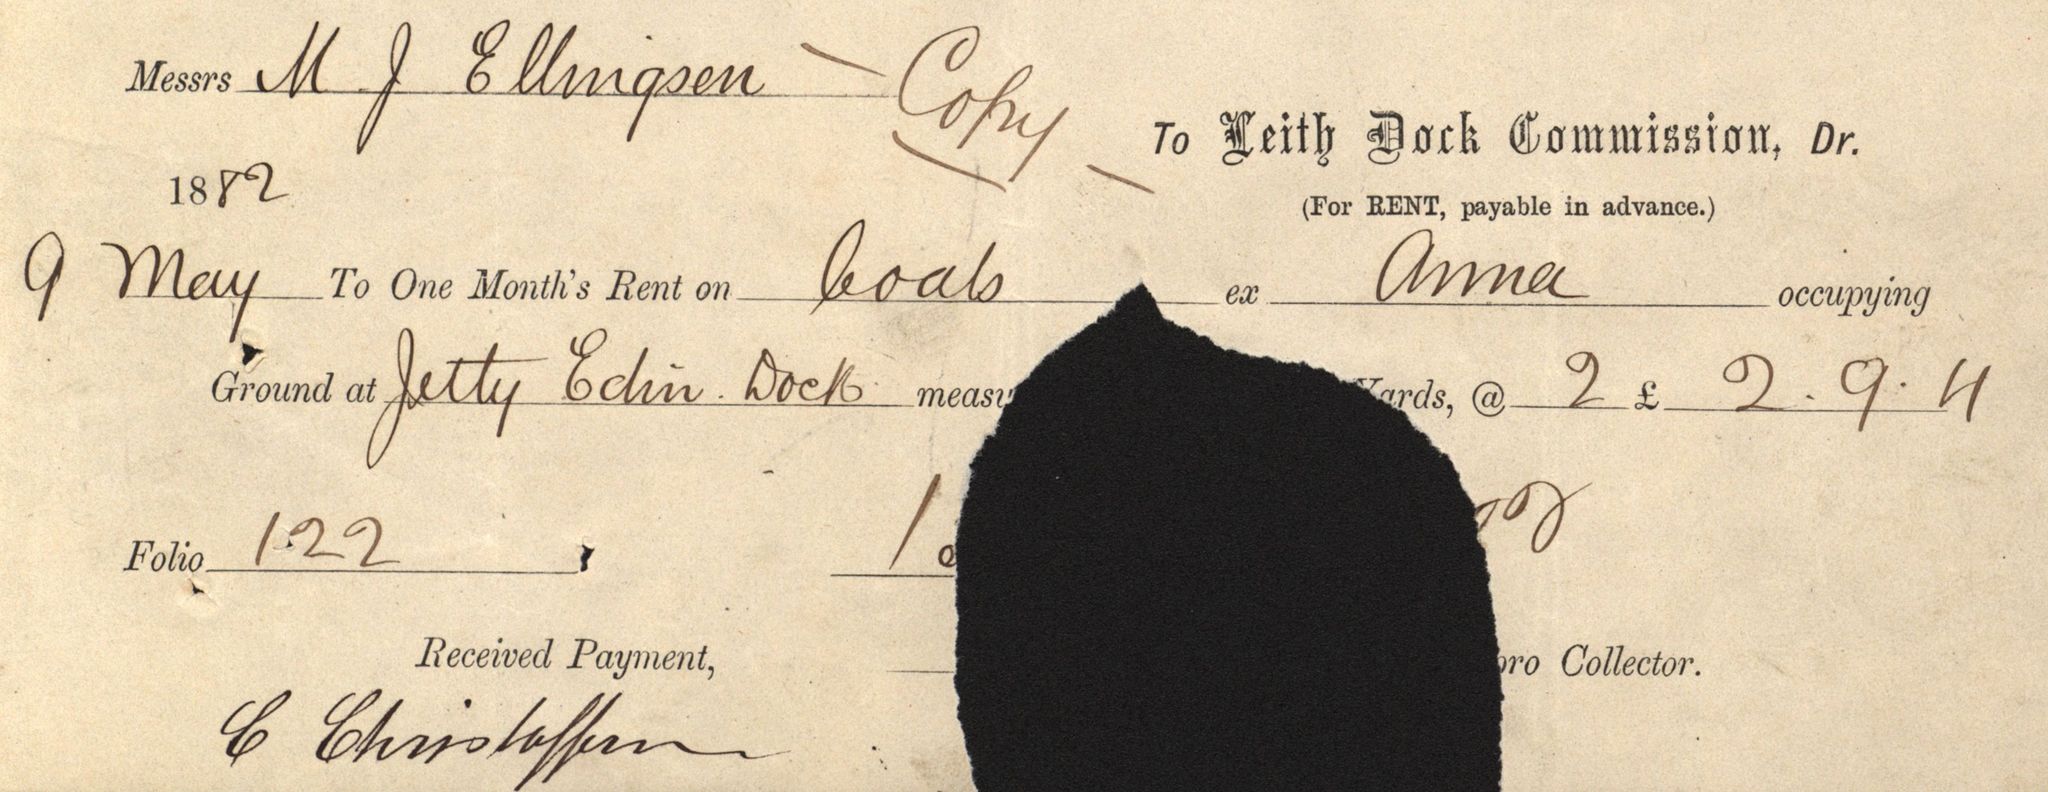 Messrs M J Ellingsen — Copy —
To Leith Dock Commission, Dr.
1882
(For RENT, payable in advance.)
9 May To One Month's Rent on Coals ex Anna occupying
Ground at Jetty Edin. Dock measu ards, @ 2 £ 2. 9. 4
Folio 122
Received Payment, pro Collector.
C Christoffersen